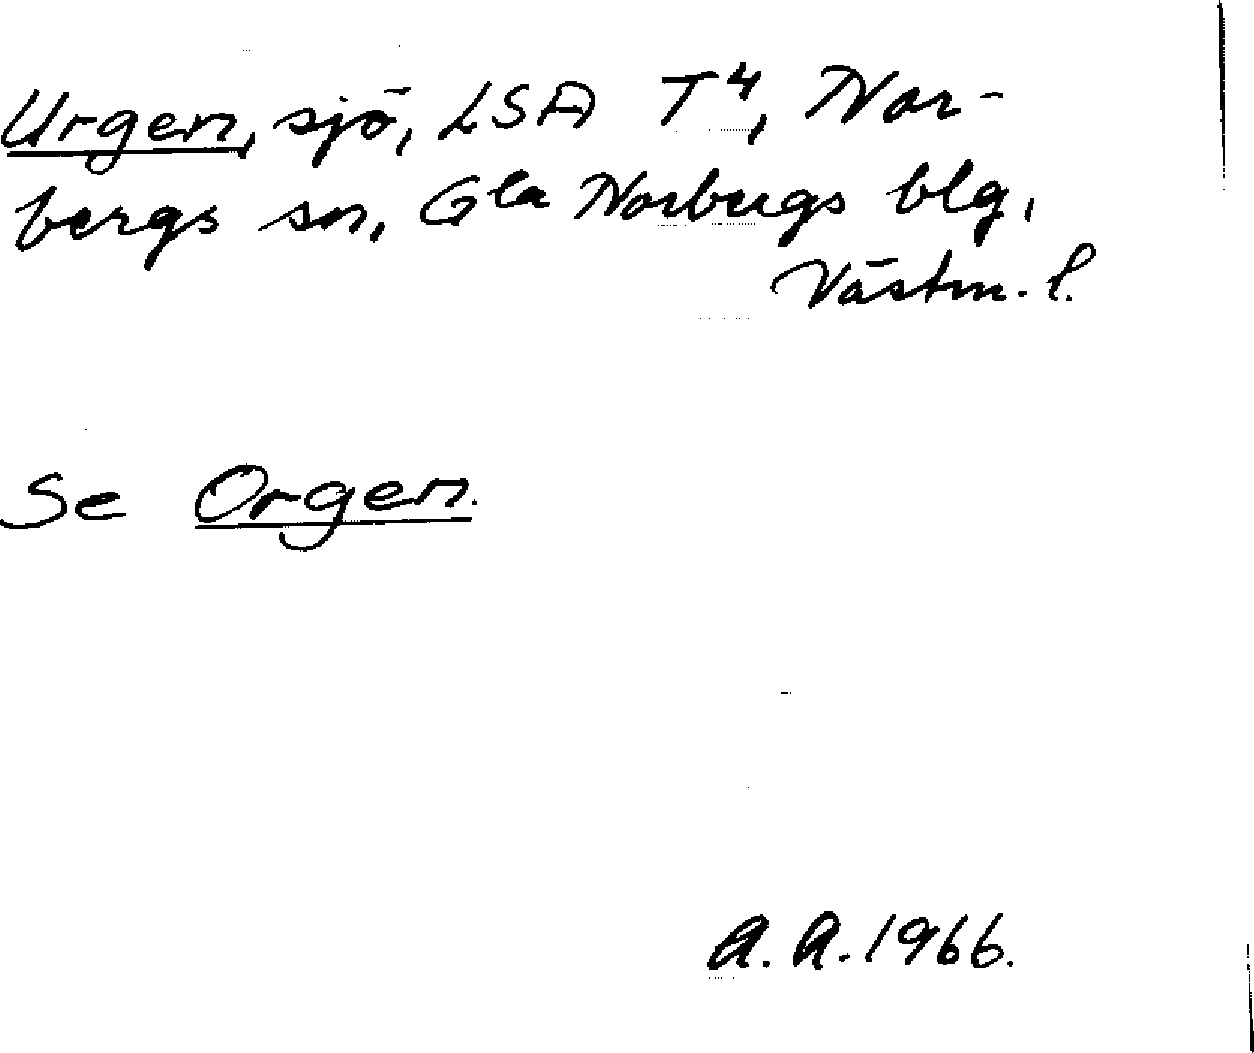 Urgen, sjö, LSA T4, Nor-
bergs sn, Gla Norbergs blg,
Västm. l.
Se Orgen.
A. A. 1966.